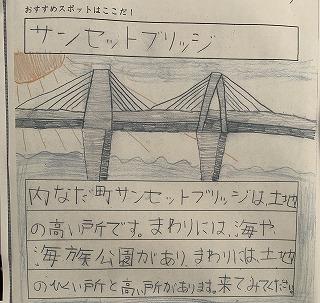 おすすめスポットはここだ！
サンセットブリッジ
内なだ町サンセットブリッジは、土地
の高い所です。まわりには、海や、
海族公園があり、まわりには、土地
のひくい所と高い所があります。来てみてください。